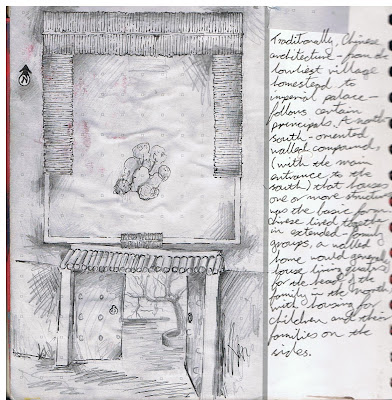 Traditionally, Chinese
architecture - from the
lowliest village
homestead to
imperial palace -
follows certain
principals. A north
south - oriented
walled compound,
(with the main
entrance to the
south) that houses
one or more structures
was the basic form
Chinese lived together
in extended family
groups, a walled
home would generally
house living quarters
for the head of the
family in the north
with housing for
children and their
families on the
sides.